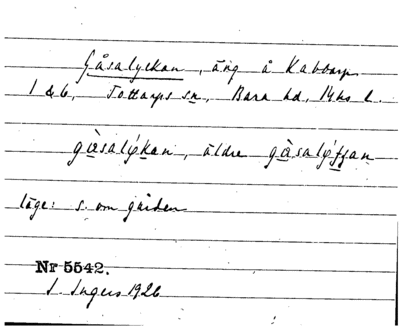 Gåsalyckan, äng å Kabbarp
1 & 6, Tottarps sn, Bara hd, Mhs l.
gåsalykan, äldre gåsalyfjan
läge: s. om gården
Nr 5542.
I. Ingers 1926